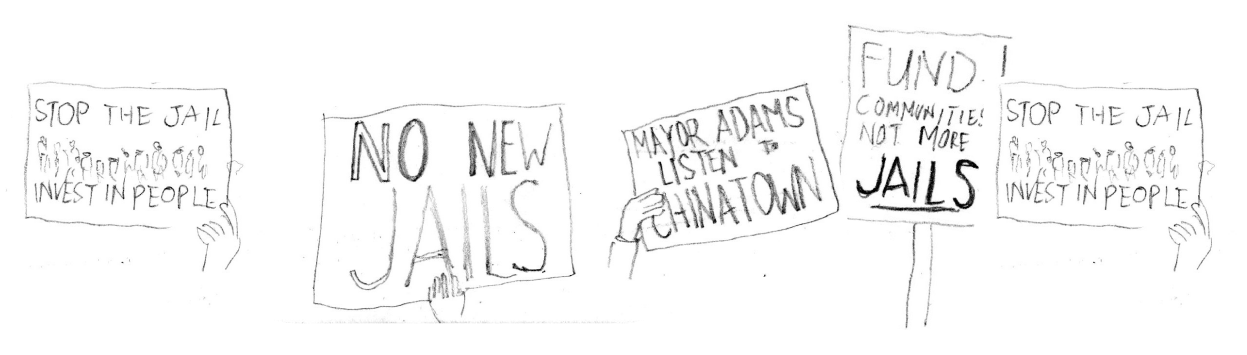 STOP THE JAIL
INVEST IN PEOPLE
NO NEW
JAILS
MAYOR ADAMS
LISTEN TO
CHINATOWN
FUND
COMMUNITIES!
NOT MORE
JAILS
STOP THE JAIL
INVEST IN PEOPLE